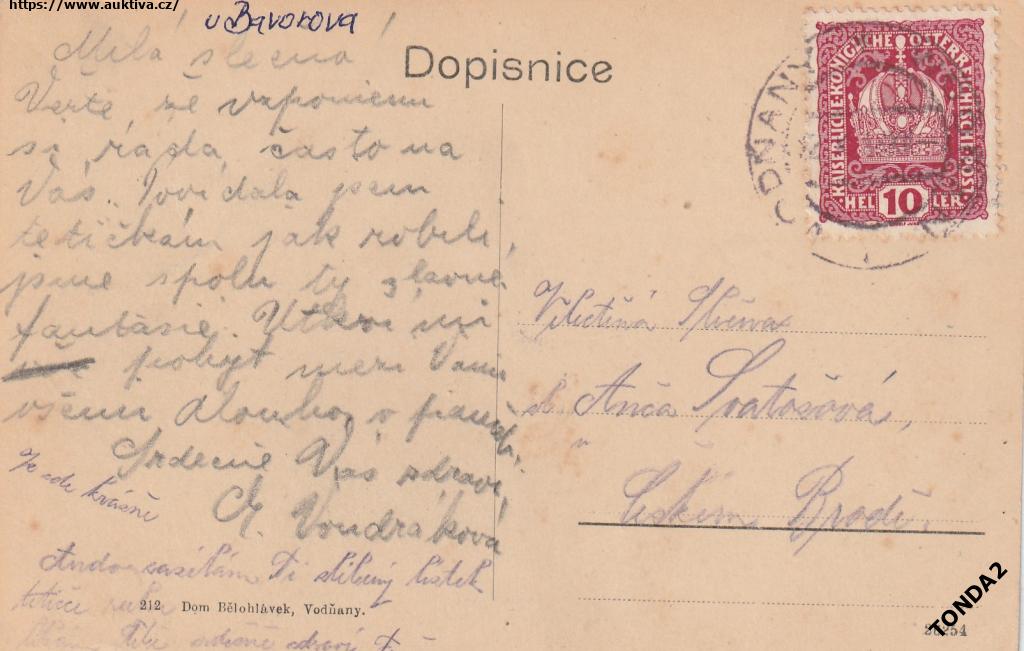 https://www.auktiva.cz/
u Bavorova
Dopisnice
Milá slečno!
Věřte, že vzpomenu
si ráda, často na
Vás. Povídala jsem
tetičkám jak robili
jsme spolu ty slavné
fantasie. Utkví mi
pobyt mezi Vámi
všemi dlouho v paměti.
Srdečně Vás zdraví
M. Vondráková
Je zde krásně
zasílám Ti slíbený lístek
tetičce ruku
srdečně zdraví
212 Dom Bělohlávek, Vodňany.
VODŇANY
KAISERLICHE KÖNIGLICHE ÖSTERREICHISCHE POST
HELLER
10
Slečna
Anča Svatošová,
v
Českém Brodě.
28254
TONDA2